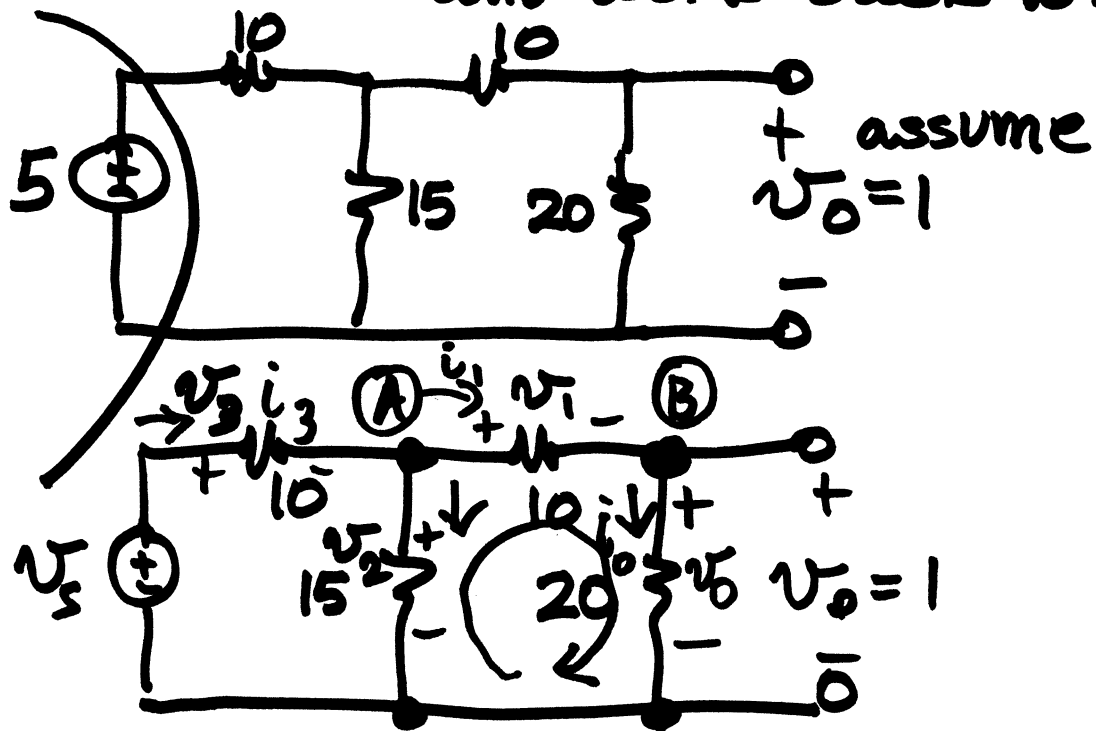 10 10
5 + 15 20 + assume
v₀ = 1
−
v₃ i₃ A i₁ + v₁ − B
+ 10 − 10 +
vₛ + − v₂ + 15 − 20 i₀ + v₀ − v₀ = 1
−